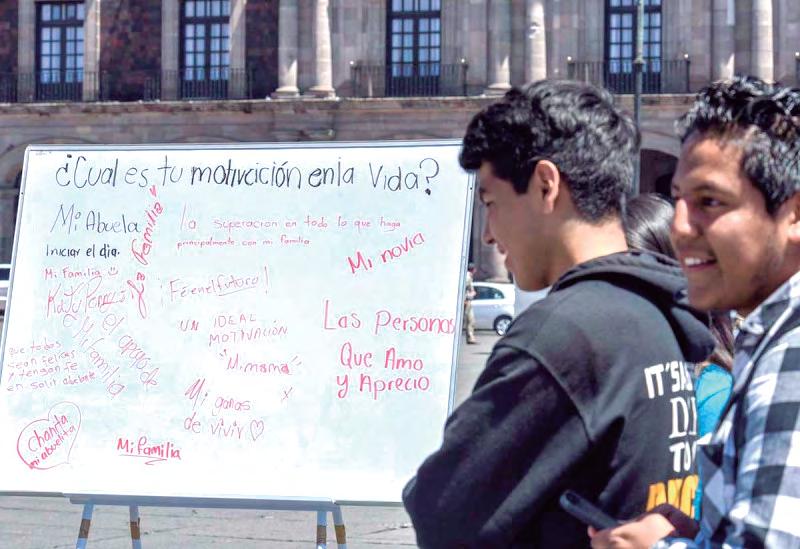 ¿Cual es tu motivación en la Vida?
Mi Abuela
Iniciar el dia.
Mi Familia
La familia
la superacion en todo lo que haga
principalmente con mi familia
Mi novia
Fé en el futuro!
UN IDEAL
MOTIVACIÓN
"Mi mamá"
Mis ganas
de vivir
Las Personas
Que Amo
y Aprecio
El apoyo de
Mi familia
que todos
sean felices
y tengan fe
en salir adelante
Chanta
mi abuelita
Mi familia
IT'S A
TO